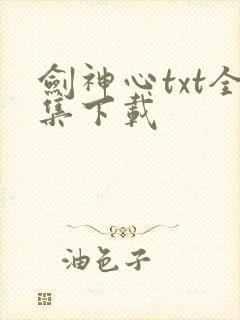 劍神心txt全
集下載
油色子